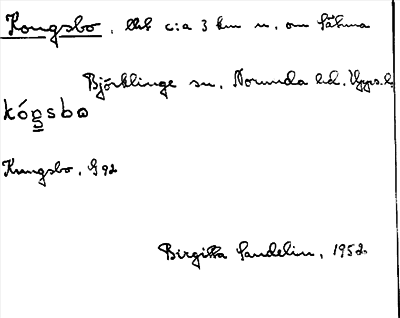 Kongsbo, lht c:a 3 km n. om Såtuna
Björklinge sn, Norunda hd. Upps. l.
kóŋsbo
Kungsbo, G 92
Birgitta Sandelin, 1952.